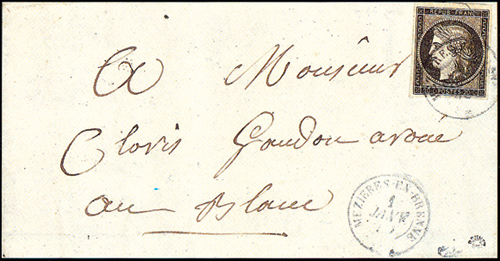 REPUB. FRANC.
20 POSTES 20
A Monsieur
Clovis Gaudon avoué
au Blanc
MEZIERES-EN-BRENNE
1
JANV